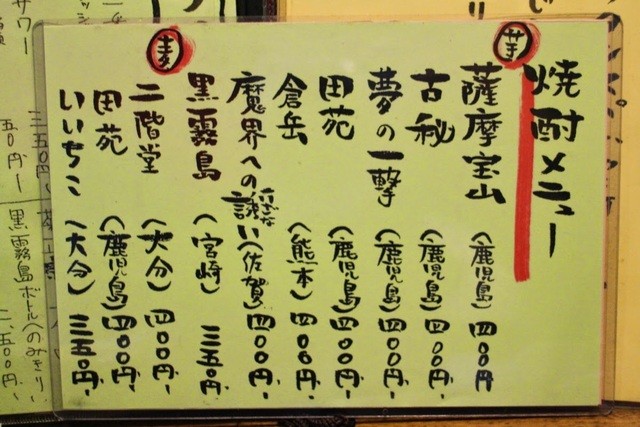 焼酎メニュー
芋
薩摩宝山（鹿児島）四〇〇円
古秘（鹿児島）四〇〇円、
夢の一撃（鹿児島）四〇〇円、
田苑（鹿児島）四〇〇円、
倉岳（熊本）四〇〇円、
魔界への誘い（佐賀）四〇〇円、
いざな
黒霧島（宮崎）三五〇円、
麦
二階堂（大分）四〇〇円、
田苑（鹿児島）四〇〇円、
いいちこ（大分）三五〇円、
サワー
三五〇円
五〇円
黒霧島ボトルへのみきりい
二、五〇〇円、